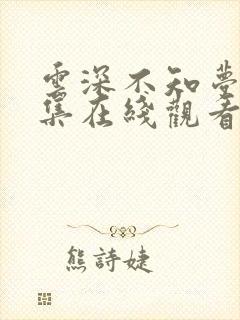 雲深不知夢
集在綫觀看
熊詩婕